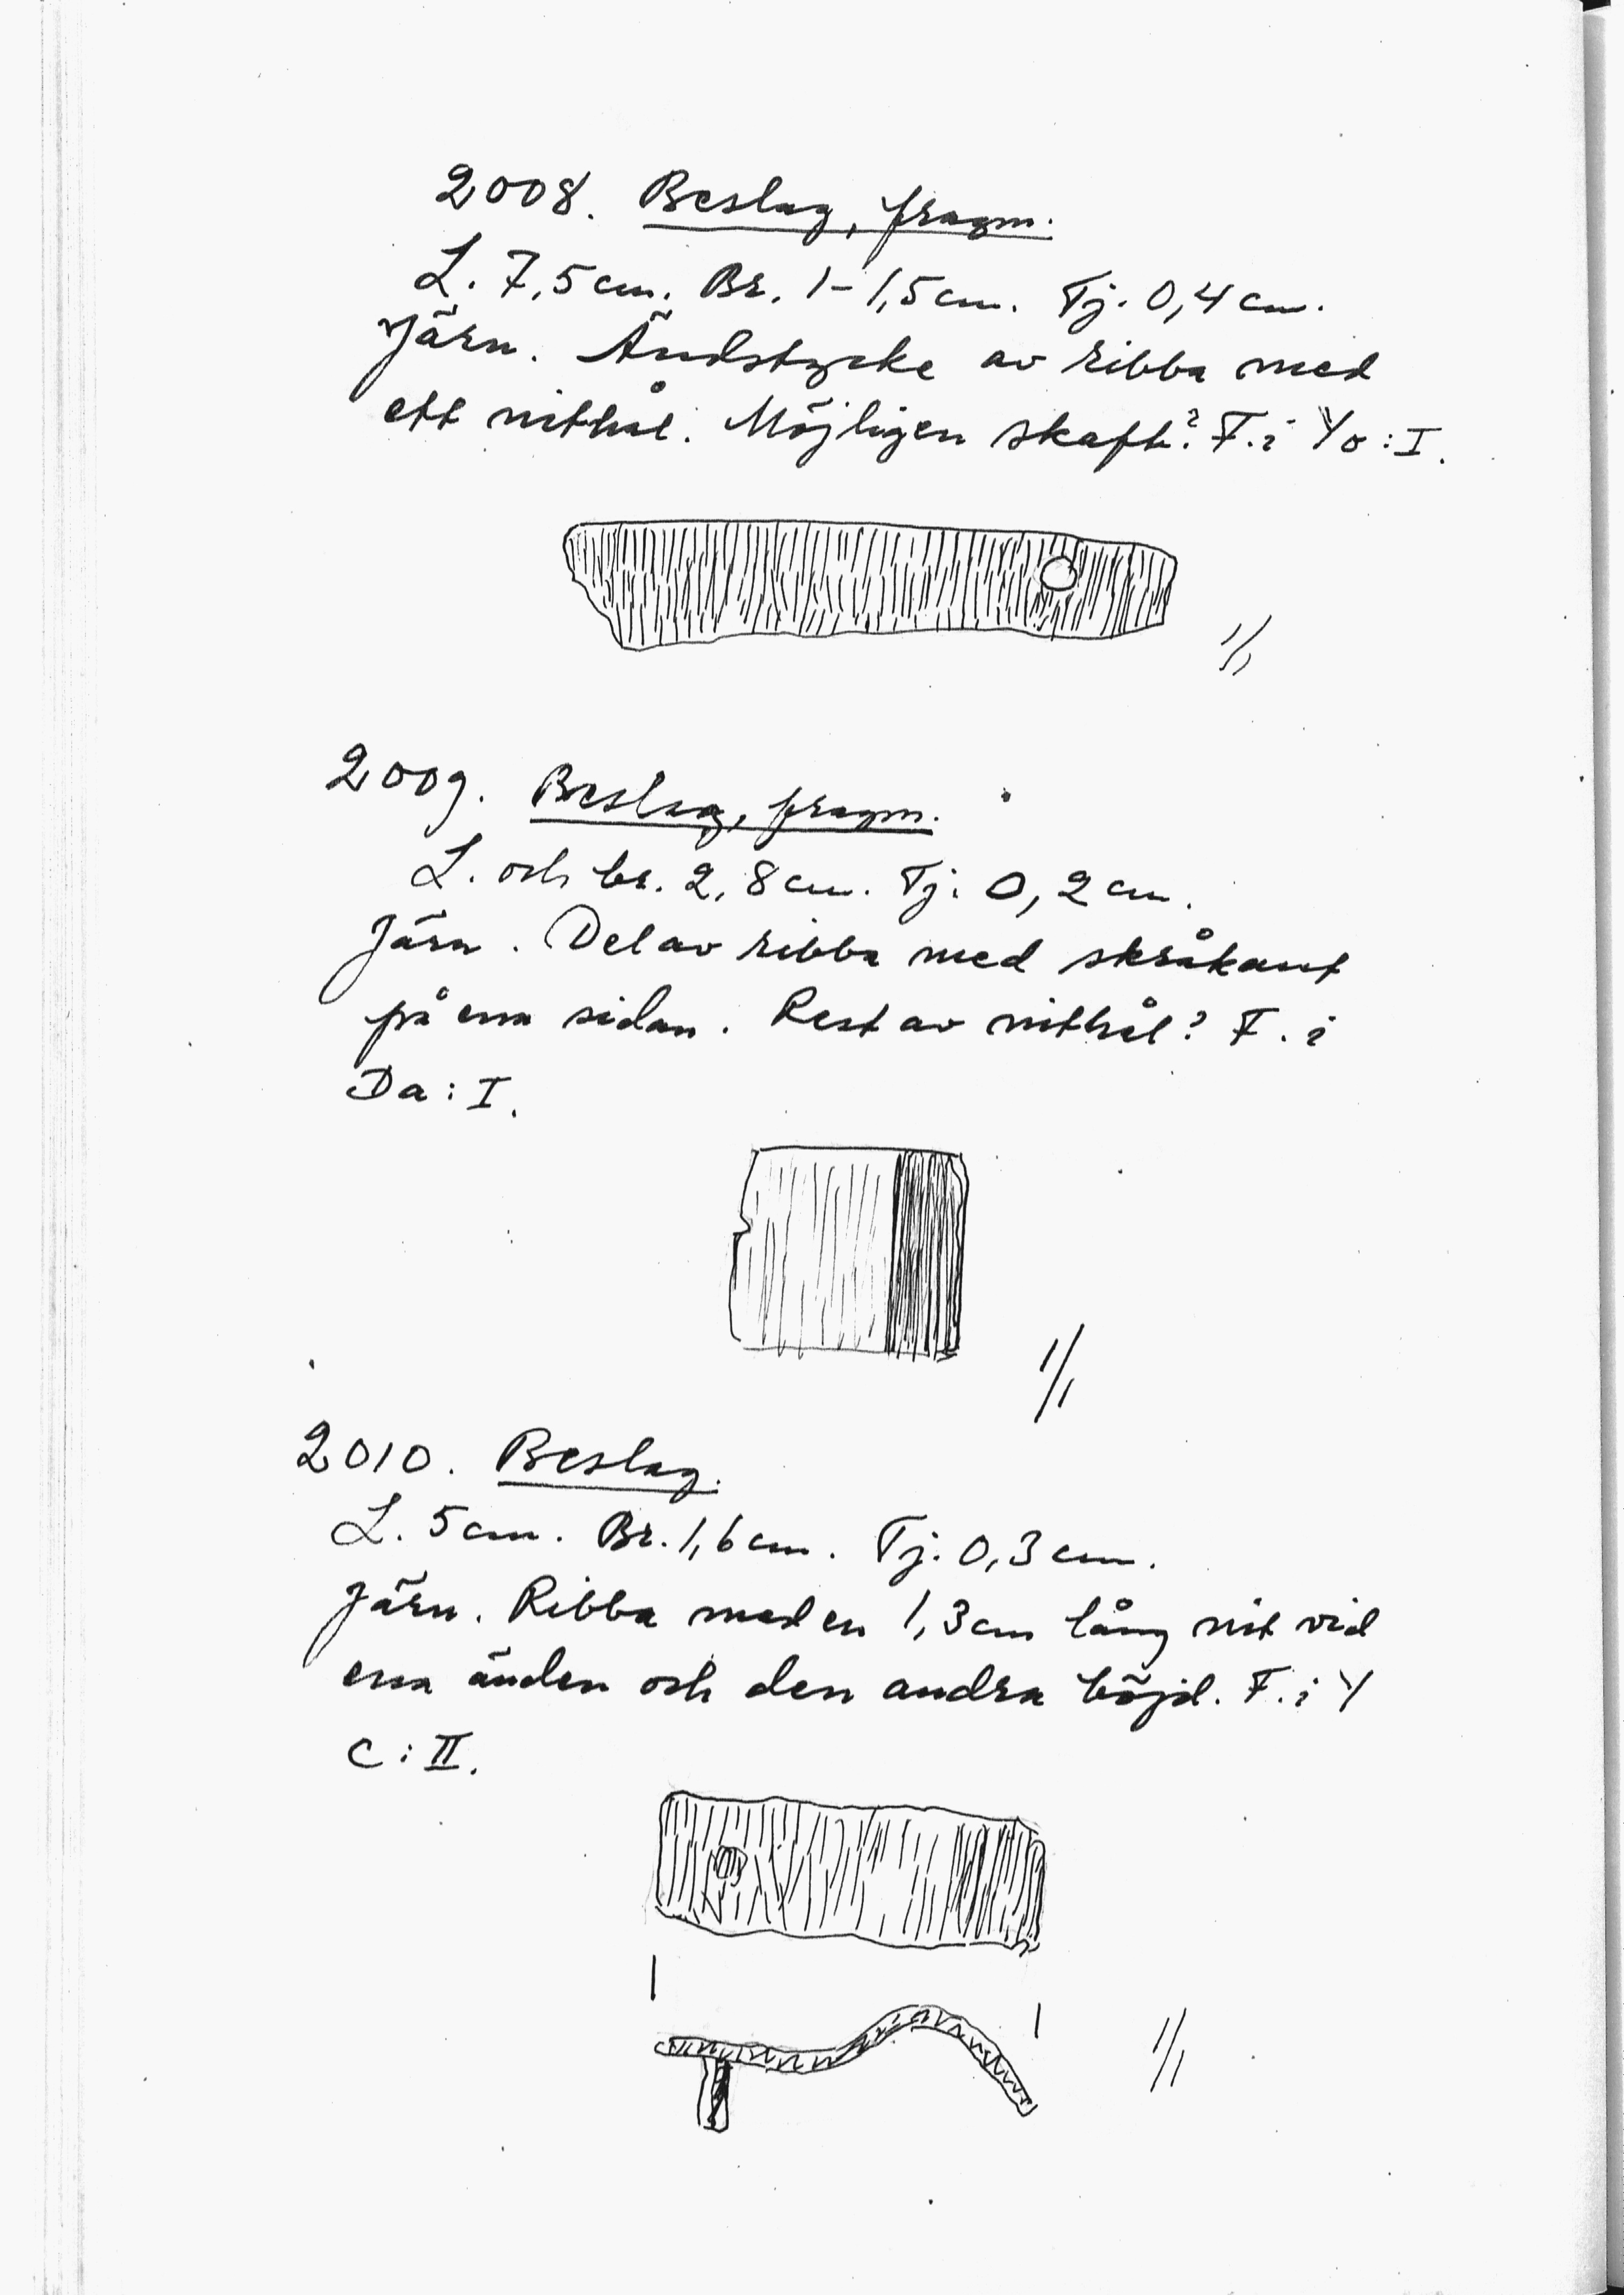 2008. Beslag, fragm.
L. 7,5 cm. Br. 1-1,5 cm. Tj. 0,4 cm.
Järn. Ändstycke av ribba med
ett nithål. Möjligen skaft? F. i Yo: I.
1/1
2009. Beslag, fragm.
L. och br. 2,8 cm. Tj. 0,2 cm.
Järn. Del av ribba med skråkant
på ena sidan. Rest av nithål? F. i
Da: I.
1/1
2010. Beslag.
L. 5 cm. Br. 1,6 cm. Tj. 0,3 cm.
Järn. Ribba med en 1,3 cm lång nit vid
ena änden och den andra böjd. F. i Y
C: II.
1/1